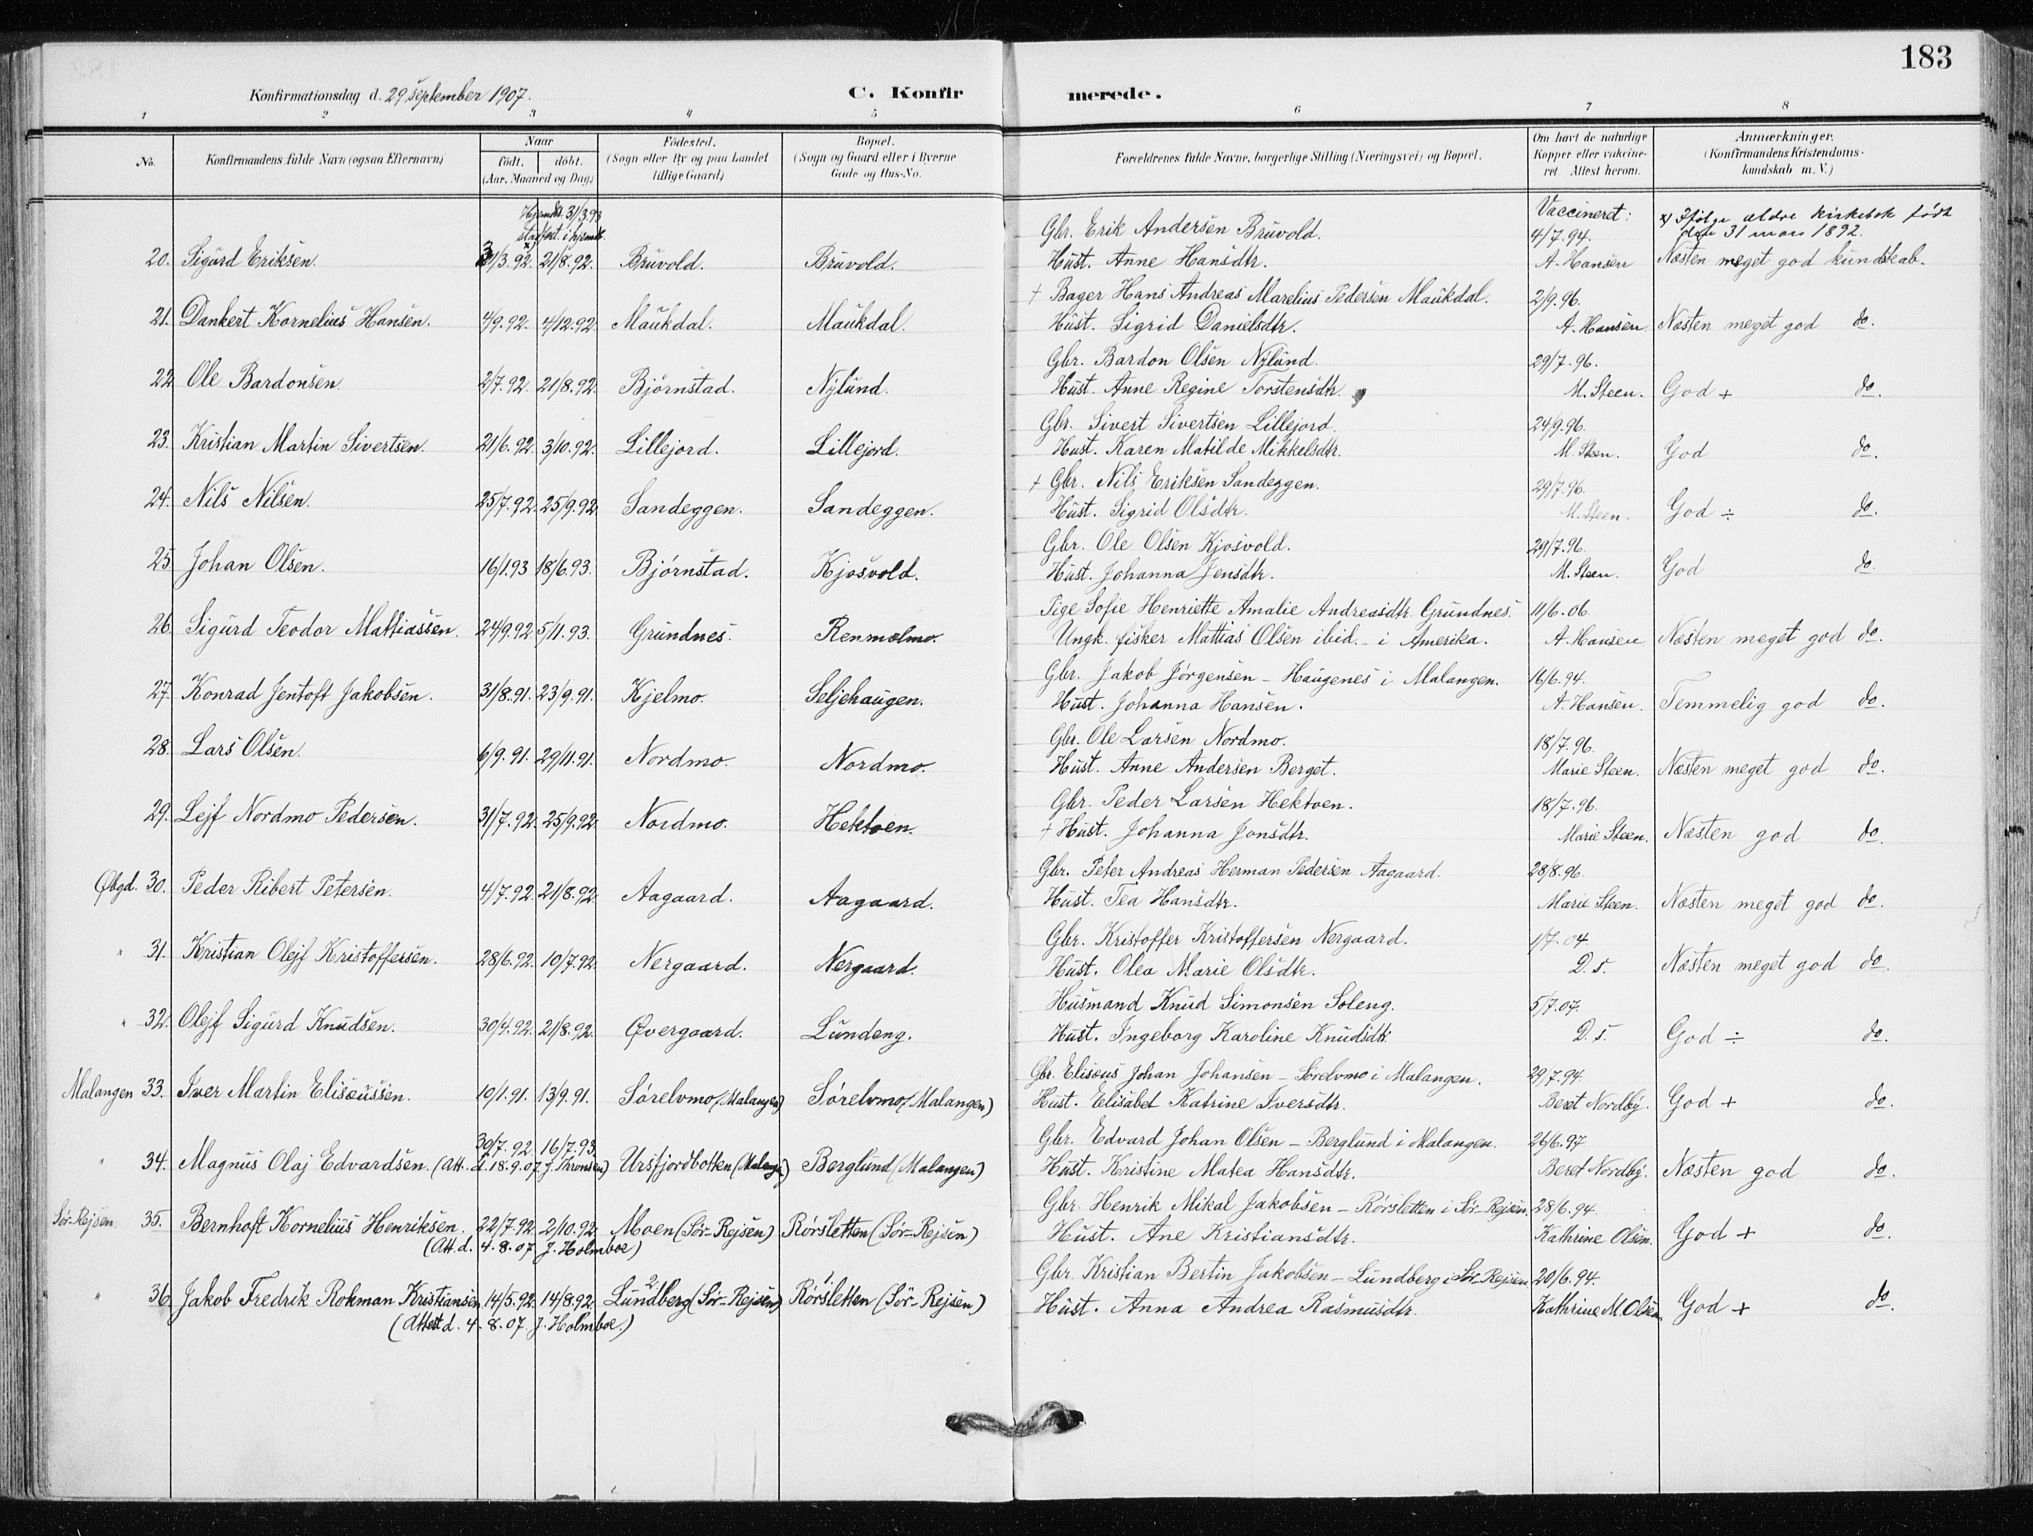 183
Konfirmationsdag d. 29 september 1907.
C. Konfirmerede.
1 2 3 4 5 6 7 8
No.
Konfirmandens fulde Navn (ogsaa Efternavn)
Naar
født. døbt.
(Aar, Maaned og Dag)
Fødested.
(Sogn eller By og paa Landet
tillige Gaard)
Bopæl.
(Sogn og Gaard eller i Byerne
Gade og Hus-No.
Forældrenes fulde Navne, borgerlige Stilling (Næringsvei) og Bopæl.
Om havt de naturlige
Kopper eller vaccine-
ret. Attest herom.
Anmærkninger.
(Konfirmandens Kristendoms-
kundskab m. V.)
Hjemdt. 31/3.93
stadfæst. i hjemdt.
Vaccineret:
x) Ifølge ældre kirkebok født
den 31 mars 1892.
Gbr. Erik Andersen Bruvold. 4/7.94.
20. Sigurd Eriksen. 31/3.92. 21/8.92. Bruvold. Bruvold. Hust. Anne Hansdtr. A. Hansen Næsten meget god kundskab.
+ Bager Hans Andreas Marelius Pedersen Maukdal. 2/9.96.
21. Dankert Kornelius Hansen. 4/9.92. 4/12.92. Maukdal. Maukdal. Hust. Sigrid Danielsdtr. A. Hansen Næsten meget god do.
Gbr. Bardon Olsen Nylund. 29/7.96.
22. Ole Bardonsen. 2/7.92. 21/8.92. Bjørnstad. Nylund. Hust. Anne Regine Torstensdtr. M. Steen. God + do.
Gbr. Sivert Sivertsen Lillejord. 24/9.96.
23. Kristian Martin Sivertsen. 21/6.92. 3/10.92. Lillejord. Lillejord. Hust. Karen Matilde Mikkelsdtr. M. Steen. God do.
+ Gbr. Nils Eriksen Sandeggen. 29/7.96.
24. Nils Nilsen. 25/7.92. 25/9.92. Sandeggen. Sandeggen. Hust. Sigrid Olsdtr. M. Steen. God ÷ do.
Gbr. Ole Olsen Kjosvold. 29/7.96.
25. Johan Olsen. 16/1.93 18/6.93. Bjørnstad. Kjosvold. Hust. Johanna Jensdtr. M. Steen. God do.
Pige Sofie Henriette Amalie Andreasdtr. Grundnes. 11/6.06.
26. Sigurd Teodor Mattiassen. 24/9.92 5/11.93. Grundnes. Renmælmo. Ungk. fisker Mattias Olsen ibid. - i Amerika. A. Hansen Næsten meget god do.
Gbr. Jakob Jørgensen - Haugenes i Malangen. 16/6.94.
27. Konrad Jentoft Jakobsen. 31/8.91. 23/9.91. Kjelmo. Seljehaugen. Hust. Johanna Hansen. A. Hansen. Temmelig god do.
Gbr. Ole Larsen Nordmo. 18/7.96.
28. Lars Olsen. 6/9.91. 29/11.91. Nordmo. Nordmo. Hust. Anne Andersen Berget. Marie Steen. Næsten meget god do.
Gbr. Peder Larsen Hektoen. 18/7.96.
29. Lejf Nordmo Pedersen. 31/7.92. 25/9.92. Nordmo. Hektoen. + Hust. Johanna Jonsdtr. Marie Steen. Næsten god do.
Gbr. Peter Andreas Herman Pedersen Aagaard. 28/8.96.
Øbgd. 30. Peder Ribert Petersen. 4/7.92. 21/8.92. Aagaard. Aagaard. Hust. Tea Hansdtr. Marie Steen. Næsten meget god do.
Gbr. Kristoffer Kristoffersen Nergaard. 1/7.04
" 31. Kristian Olejf Kristoffersen. 28/6.92. 10/7.92. Nergaard. Nergaard. Hust. Olea Marie Olsdtr. D. s. Næsten meget god do.
Husmand Knud Simonsen Soleng. 5/7.07.
" 32. Olejf Sigurd Knudsen. 30/4.92. 21/8.92. Øvergaard. Lundeng. Hust. Ingeborg Karoline Knudsdtr. D. s. God ÷ do.
Gbr. Elisæus Johan Johansen - Sørelvmo i Malangen. 29/7.94.
Malangen 33. Iver Martin Elisæussen. 10/1.91. 13/9.91. Sørelvmo (Malangen) Sørelvmo (Malangen) Hust. Elisabet Katrine Iversdtr. Beret Nordby. God + do.
30/7.92 16/7.93. Gbr. Edvard Johan Olsen - Berglund i Malangen. 26/6.97
" 34. Magnus Olaj Edvardsen. (Att. d. 18.9.07. J. Thronsen) Ursfjordbotten (Malangen) Berglund (Malangen) Hust. Kristine Matea Hansdtr. Beret Nordby. Næsten god do.
Gbr. Henrik Mikal Jakobsen - Rørsletten i Sør-Rejsen. 28/6.94.
Sør-Rejsen. 35. Bernhoft Kornelius Henriksen. 22/7.92. 2/10.92. Moen (Sør-Rejsen) Rørsletten (Sør-Rejsen) Hust. Ane Kristiansdtr. Kathrine Olsen. God + do.
(Att. d. 4.8.07 J. Holmboe)
Gbr. Kristian Bertin Jakobsen - Lundberg i Sør-Rejsen 20/6.94.
" 36. Jakob Fredrik Rokman Kristiansen. 14/5.92. 14/8.92. Lundberg (Sør-Rejsen) Rørsletten (Sør-Rejsen) Hust. Anna Andrea Rasmusdtr. Kathrine M. Olsen. God + do.
(Attest d. 4.8.07. J. Holmboe.)